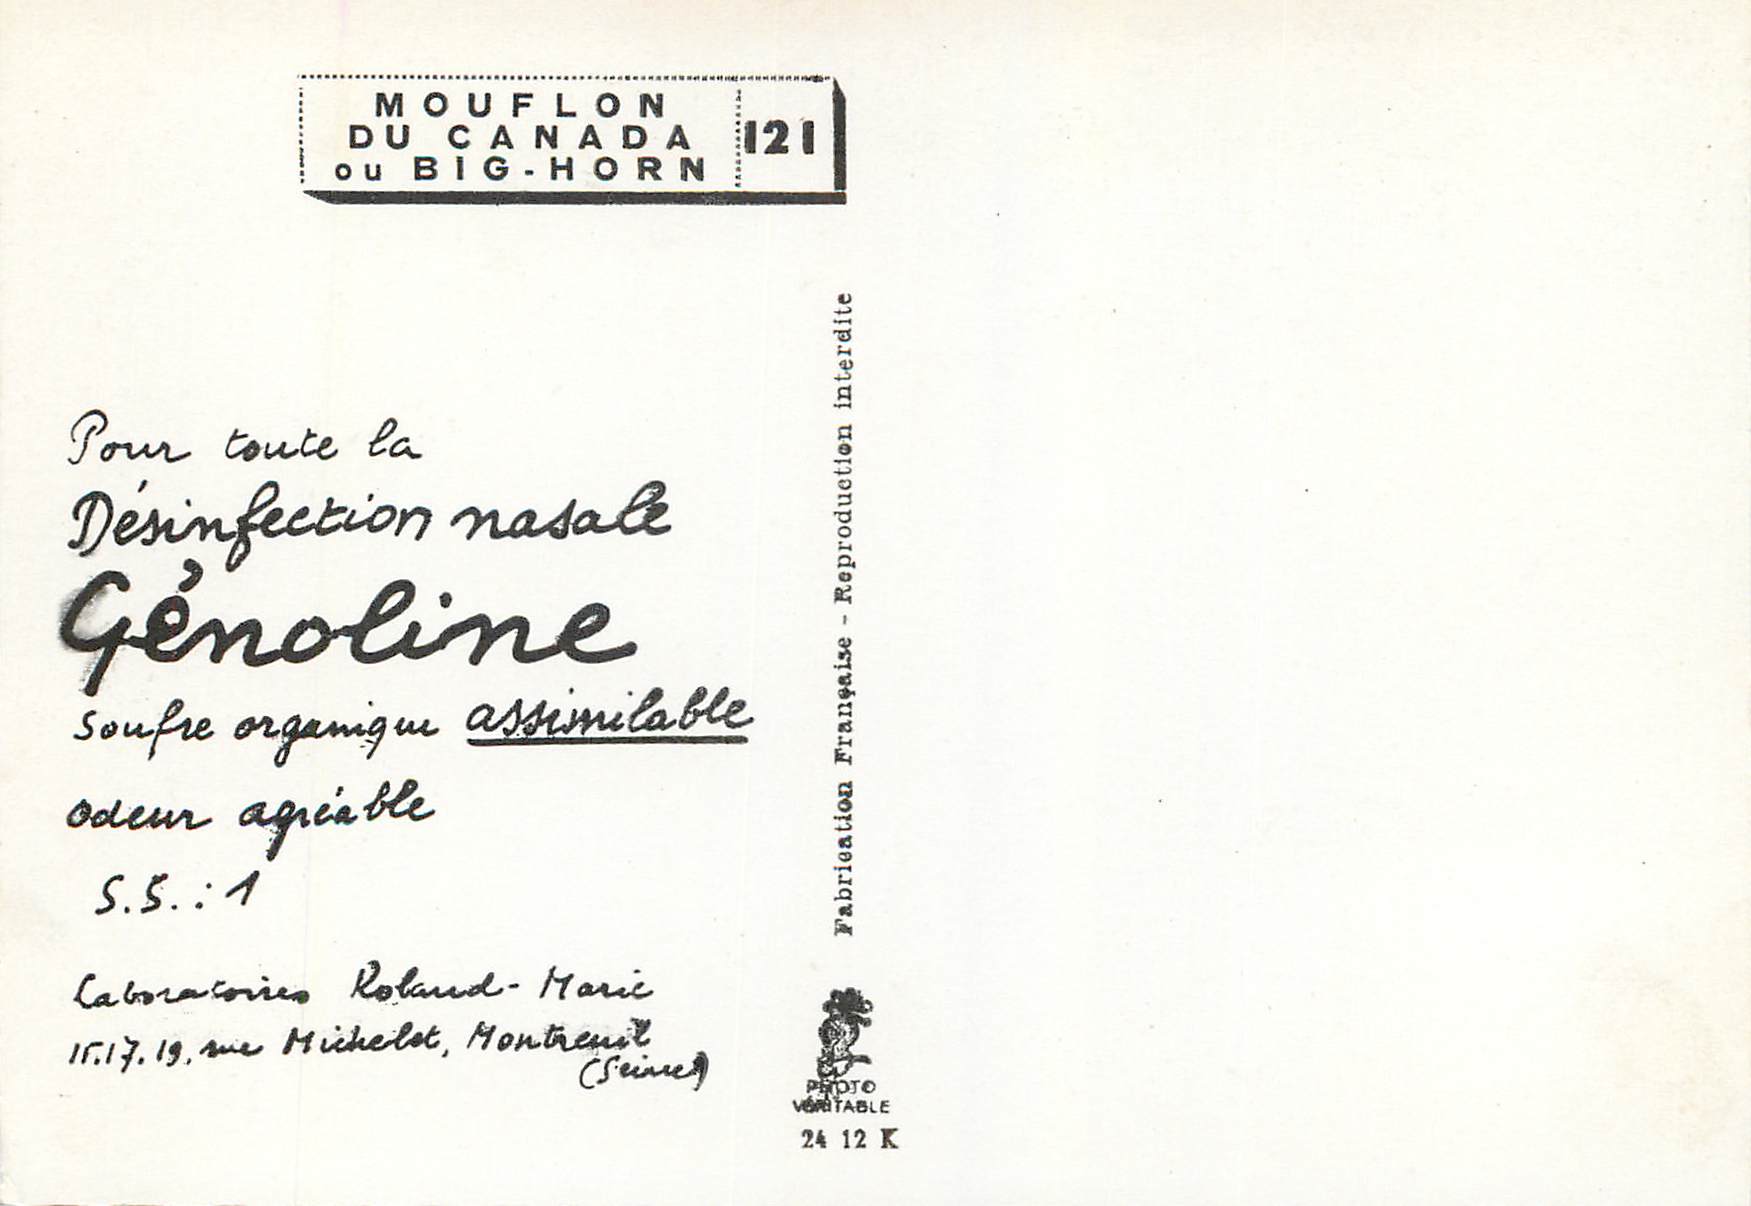 MOUFLON
DU CANADA
ou BIG-HORN
121
Pour toute la
Désinfection nasale
Génoline
Soufre organique assimilable
odeur agréable
S.S. : 1
Laboratoires Roland-Marie
15.17.19. rue Michelet, Montreuil
(Seine)
Fabrication Française - Reproduction interdite
PHOTO
VÉRITABLE
24 12 K